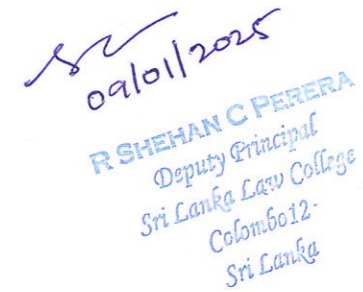 09/01/2025
R SHEHAN C PERERA
Deputy Principal
Sri Lanka Law College
Colombo 12-
Sri Lanka